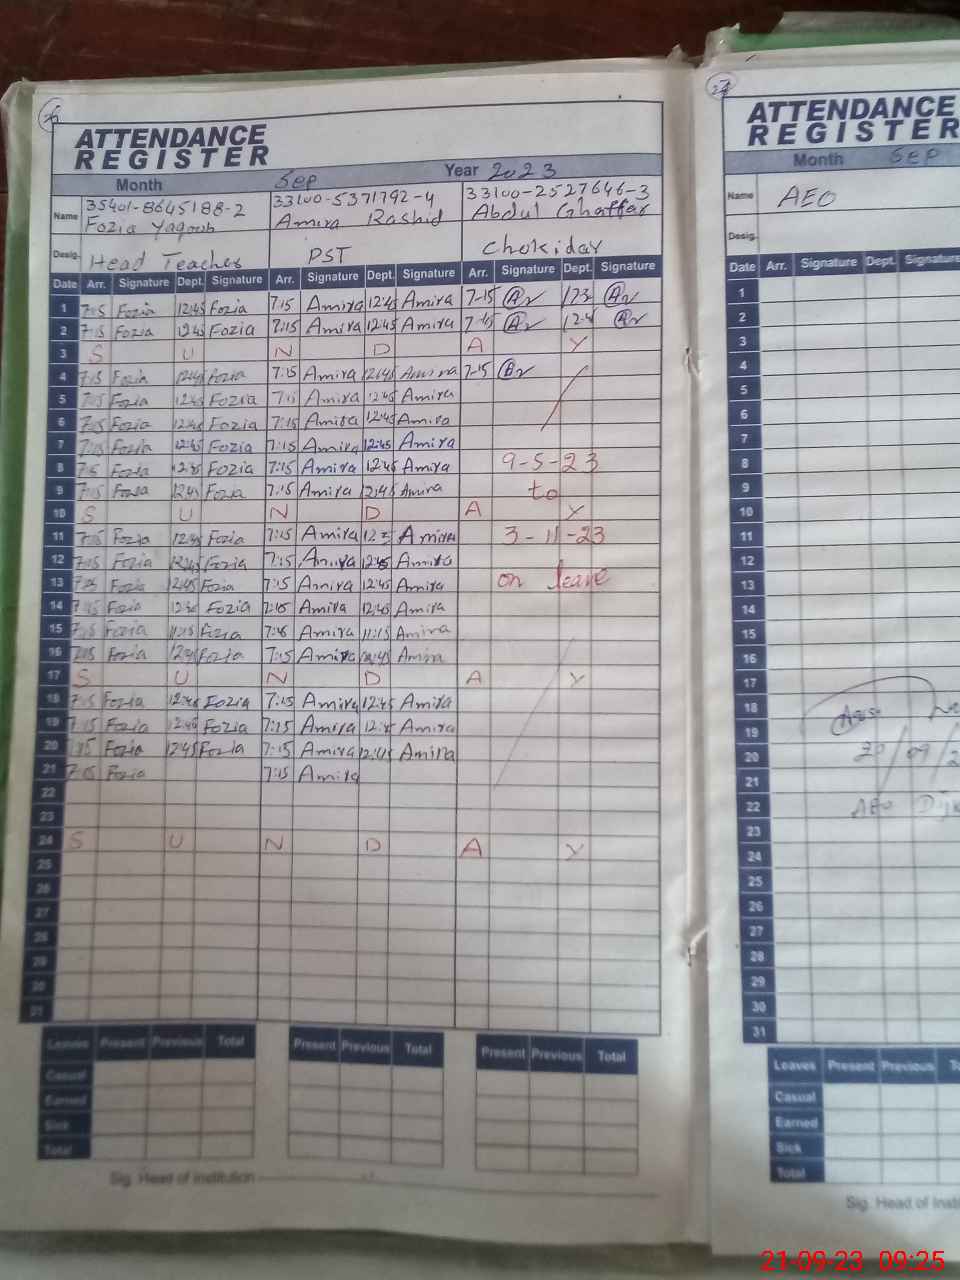 26
ATTENDANCE
REGISTER
Month Sep Year 2023
Name 35401-8645188-2 33100-5371792-4 33100-2527646-3
Fozia Yaqoub Amira Rashid Abdul Ghaffar
Desig. Head Teacher PST Chokidar
Date Arr. Signature Dept. Signature Arr. Signature Dept. Signature Arr. Signature Dept. Signature
1 7:15 Fozia 12:45 Fozia 7:15 Amira 12:45 Amira 7-15
2 7:15 Fozia 12:45 Fozia 7:15 Amira 12:45 Amira 7-15
3 S U N D A Y
4 7:15 Fozia 12:45 Fozia 7:15 Amira 12:45 Amira 7-15
5 7:15 Fozia 12:45 Fozia Amira 12:45 Amira
6 7:15 Fozia 12:45 Fozia 7:15 Amira 12:45 Amira
7 7:15 Fozia 12:45 Fozia 7:15 Amira 12:45 Amira
8 Fozia Fozia 7:15 Amira 12:45 Amira 9-5-23
9 7:15 Fozia 12:45 Fozia 7:15 Amira 12:45 Amira to
10 S U N D A Y
11 7:15 Fozia Fozia 7:15 Amira Amira 3-11-23
12 7:15 Fozia 12:45 Fozia 7:15 Amira 12:45 Amira
13 Fozia 12:45 Fozia 7:15 Amira 12:45 Amira on leave
14 Fozia Fozia Amira 12:45 Amira
15 Fozia 11:15 Fozia Amira 11:15 Amira
16 Fozia 12:45 Fozia 7:15 Amira 12:45 Amira
17 S U N D A Y
18 7:15 Fozia 12:45 Fozia 7:15 Amira 12:45 Amira
19 7:15 Fozia 12:45 Fozia 7:15 Amira 12:45 Amira
20 7:15 Fozia 12:45 Fozia 7:15 Amira 12:45 Amira
21 7:15 Fozia 7:15 Amira
22
23
24 S U N D A Y
25
26
27
28
29
30
31
Leaves Present Previous Total Present Previous Total Present Previous Total
Casual
Earned
Sick
Total
Sig. Head of Institution
27
ATTENDANCE
REGISTER
Month Sep
Name AEO
Desig.
Date Arr. Signature Dept. Signature
1
2
3
4
5
6
7
8
9
10
11
12
13
14
15
16
17
18
19
20 20/09/2
21
22 AEO
23
24
25
26
27
28
29
30
31
Leaves Present Previous
Casual
Earned
Sick
Total
Sig. Head of
21-09-23 09:25